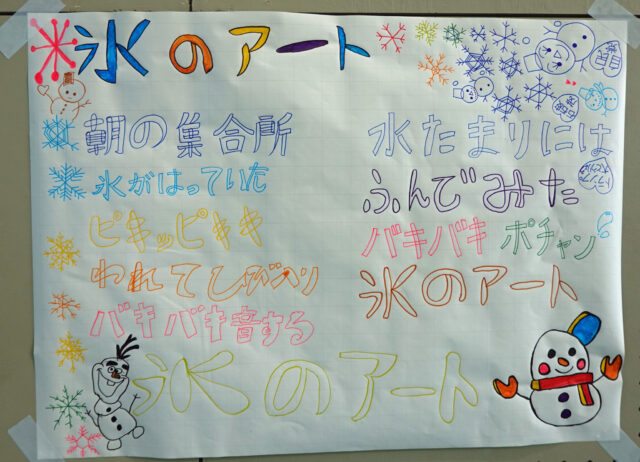 氷のアート
朝の集合所
氷がはっていた
ピキッピキキ
われて
バキバキ音する
水たまりには
ふんでみた
バキバキ ポチャン
氷のアート
氷のアート